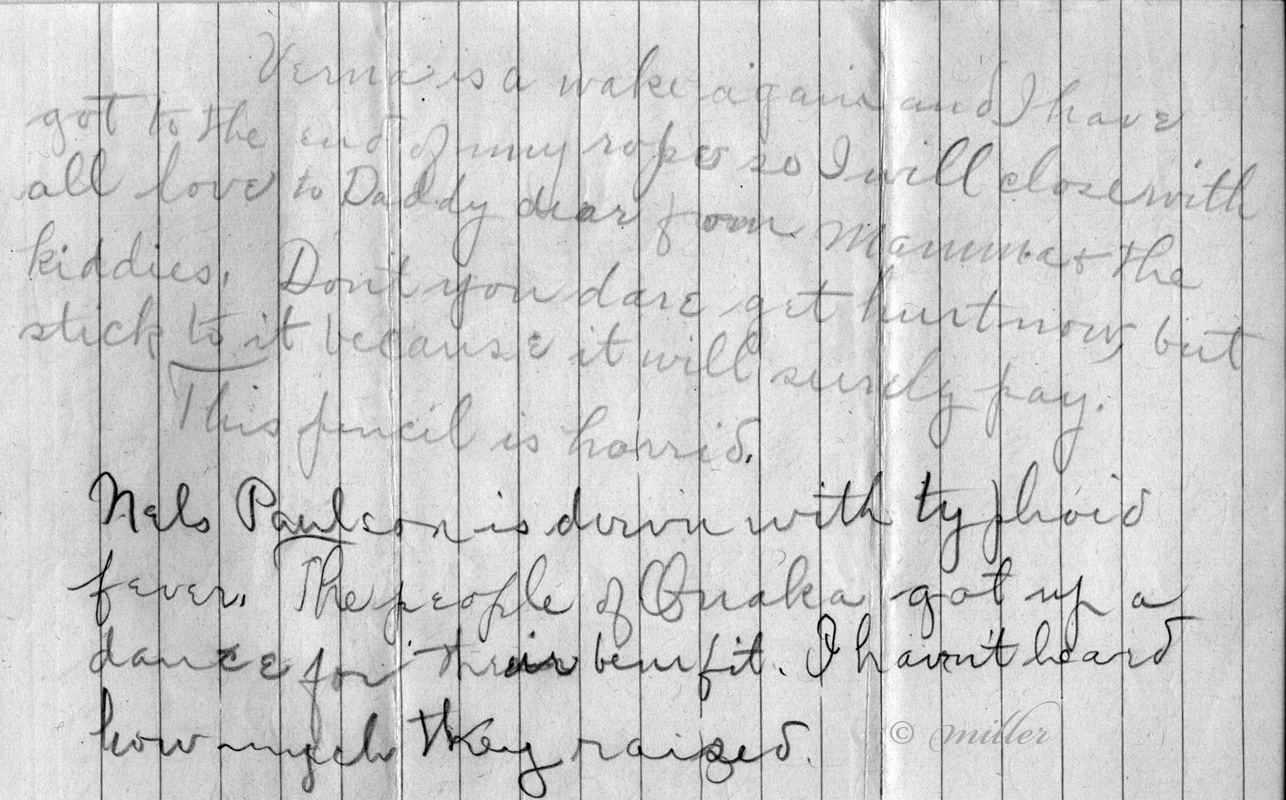 Verna is a wake again and I have
got to the end of my rope so I will close with
all love to Daddy dear from Mamma + the
kiddies. Don't you dare get hurt now, but
stick to it because it will surely pay.
This pencil is horrid.
Nels Paulson is down with typhoid
fever. The people of Onaka got up a
dance for their benefit. I havn't heard
how much they raised.
© miller